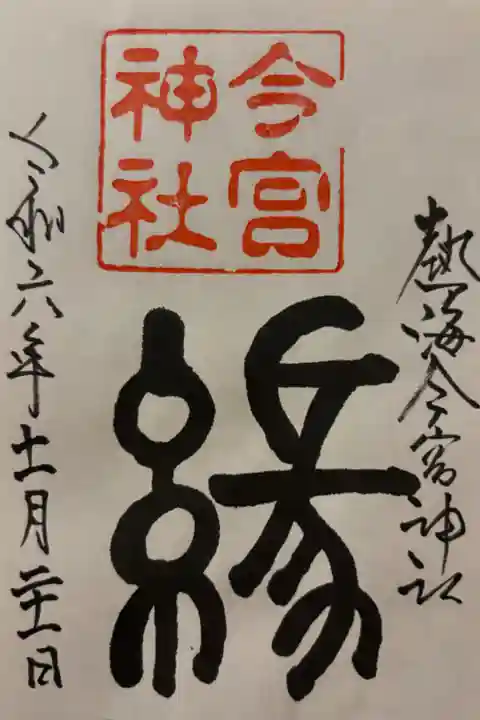 熱海今宮神社
今宮
神社
縁
令和六年十一月二十一日